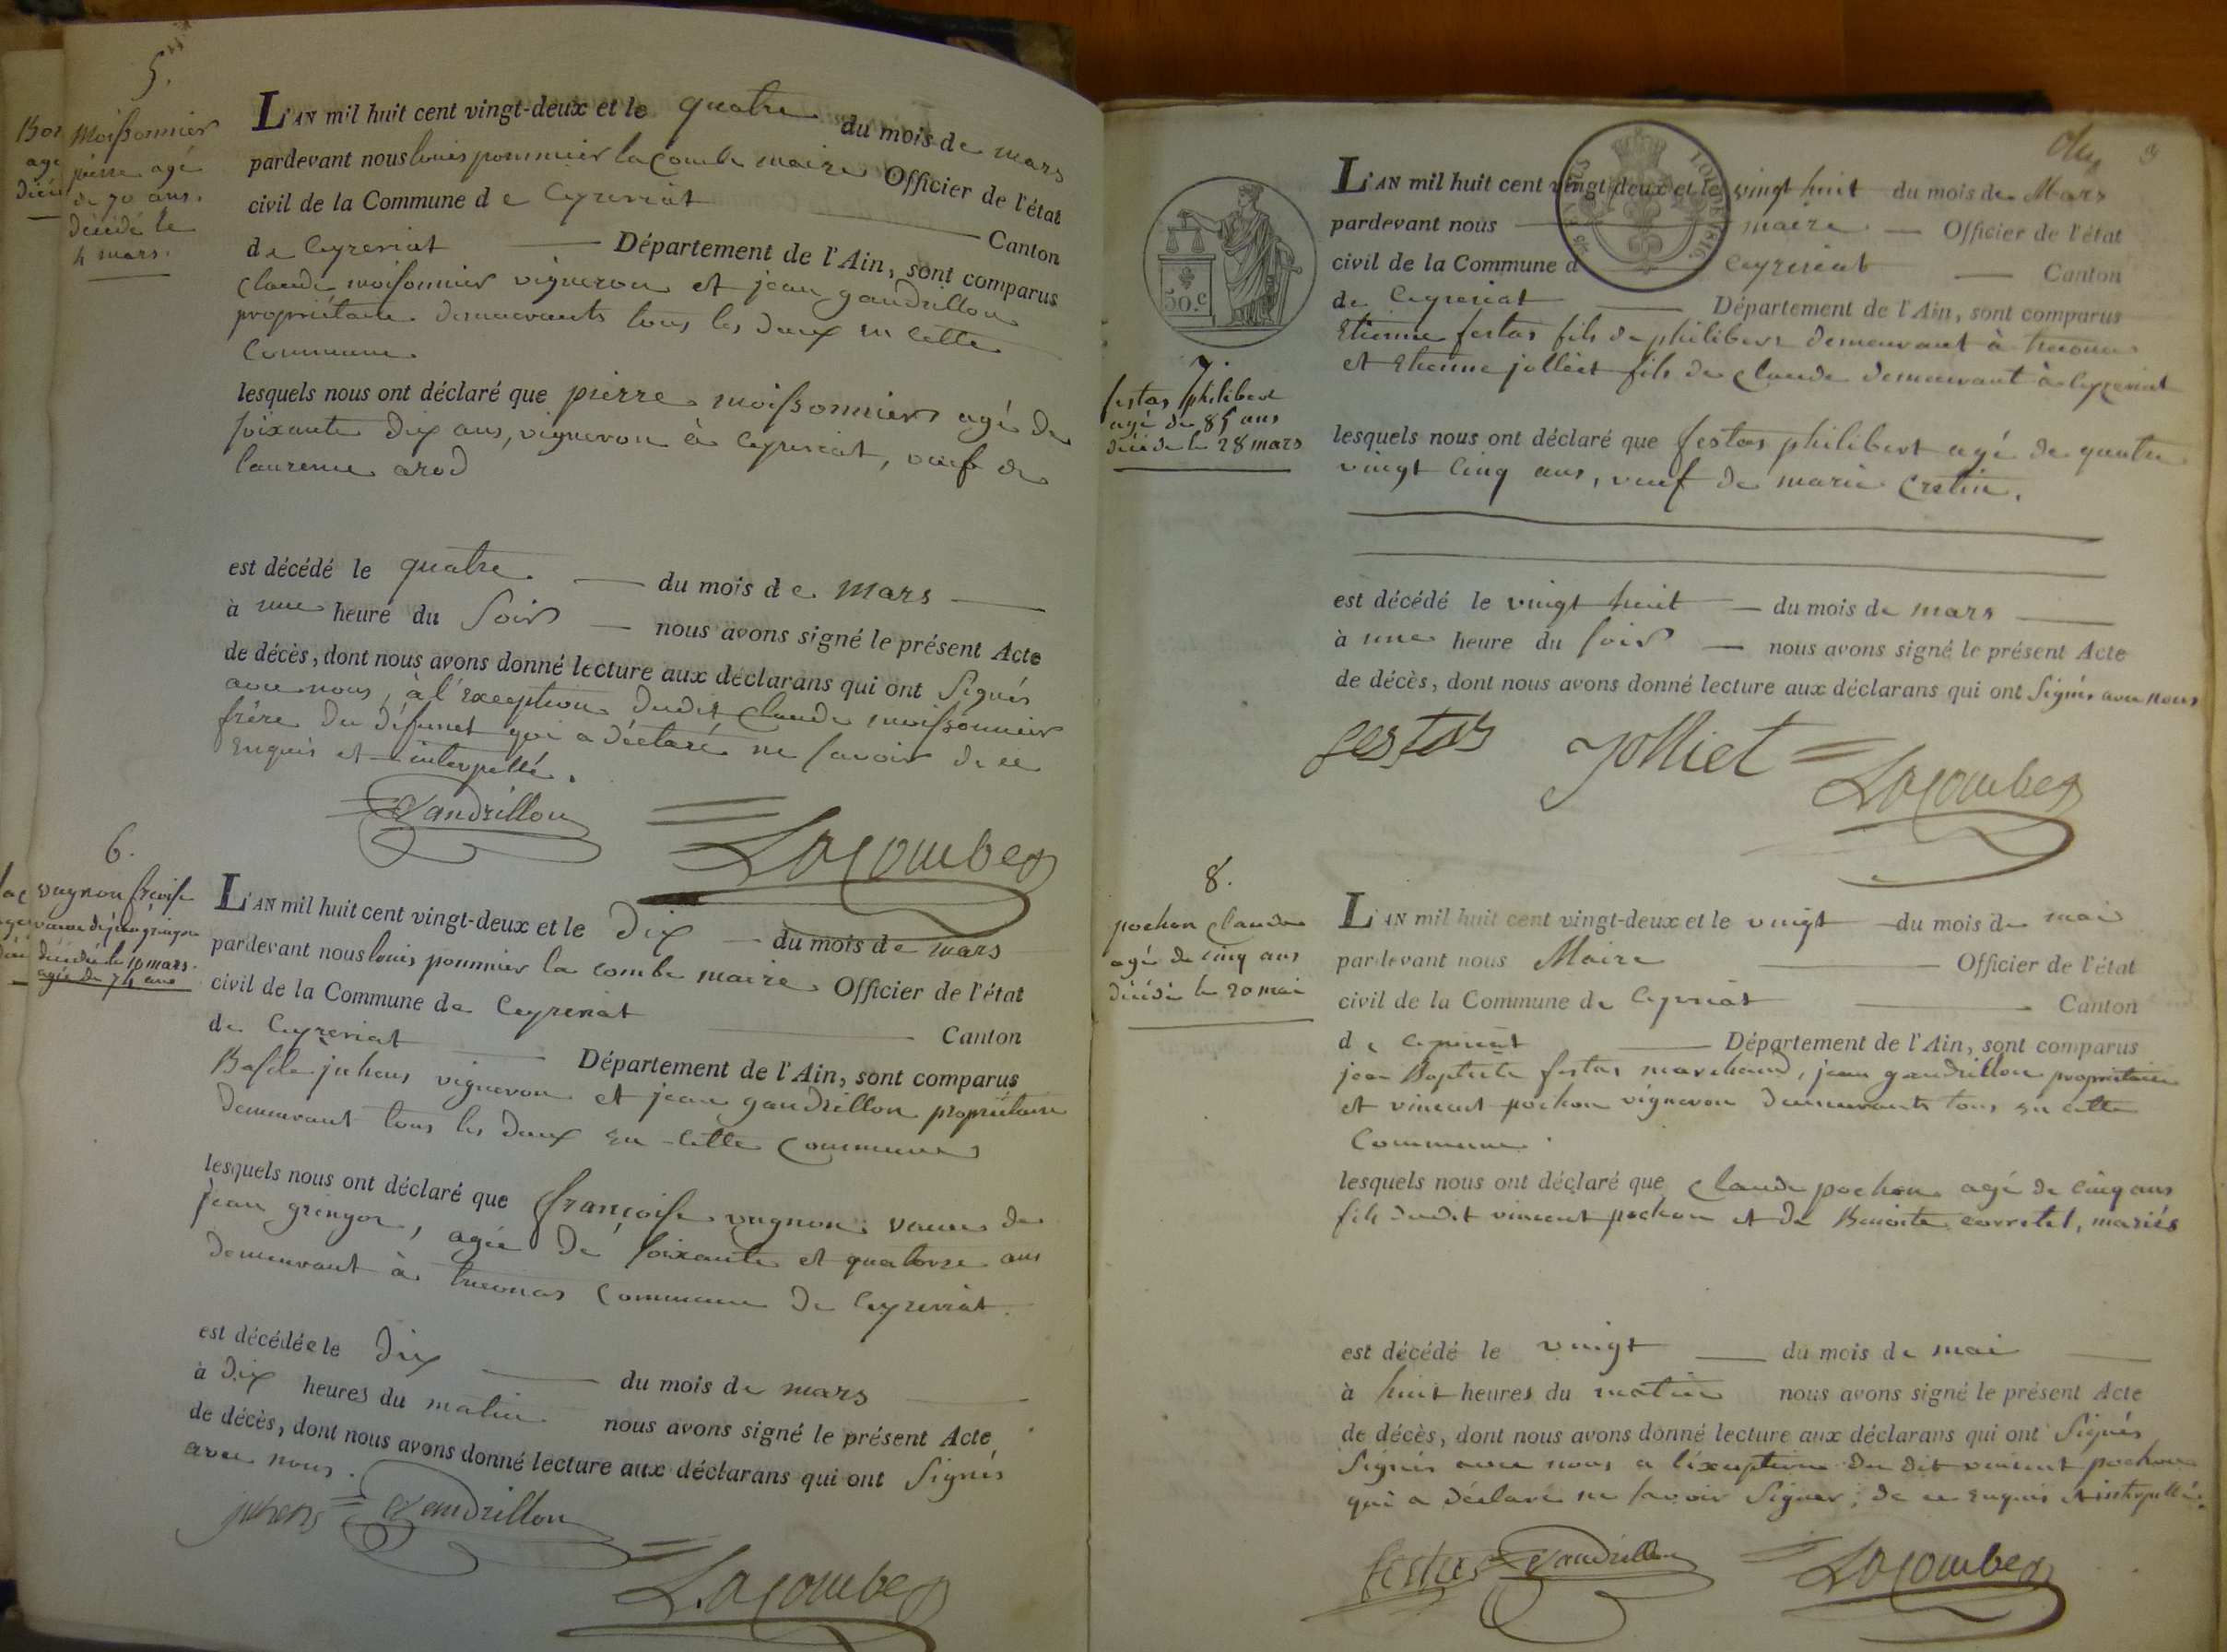 5.
Moissonnier
pierre agé
de 70 ans.
décédé le
4 mars.
L'AN mil huit cent vingt-deux et le quatre du mois de mars
pardevant nous louis pommier la combe maire Officier de l'état
civil de la Commune de Ceyzeriat Canton
de Ceyzeriat Département de l'Ain, sont comparus
Claude moissonnier vigneron et jean gandrillon
propriétaire demeurants tous les deux en cette
Commune
lesquels nous ont déclaré que pierre moissonnier agé de
soixante dix ans, vigneron à Ceyzeriat, veuf de
laurence arod
est décédé le quatre du mois de mars
à une heure du soir nous avons signé le présent Acte
de décès, dont nous avons donné lecture aux déclarans qui ont Signés
avec nous, à l'exception dudit Claude moissonnier
frère du défunct qui a déclaré ne savoir de ce
enquis et interpellé.
Gandrillon Lacombe
6.
vugnon fçoise
veuve de jean gringoz
décédée le 10 mars.
agée de 74 ans
L'AN mil huit cent vingt-deux et le dix du mois de mars
pardevant nous louis pommier la combe maire Officier de l'état
civil de la Commune de Ceyzeriat Canton
de Ceyzeriat Département de l'Ain, sont comparus
vigneron et jean gandrillon propriétaire
demeurant tous les deux en cette Commune
lesquels nous ont déclaré que françoise vugnon veuve de
jean gringoz, agée de soixante et quatorze ans
demeurant à treconas Commune de Ceyzeriat.
est décédée le dix du mois de mars
à dix heures du matin nous avons signé le présent Acte
de décès, dont nous avons donné lecture aux déclarans qui ont Signés
avec nous.
Gandrillon
Lacombe
50.c
7.
festas philibert
agé de 85 ans
décédé le 28 mars
L'AN mil huit cent vingt-deux et le vingt huit du mois de Mars
pardevant nous maire Officier de l'état
civil de la Commune d Ceyzeriat Canton
de Ceyzeriat Département de l'Ain, sont comparus
Etienne festas fils de philibert demeurant à treconas
et Etienne jolliet fils de Claude demeurant à Ceyzeriat
lesquels nous ont déclaré que festas philibert agé de quatre
vingt cinq ans, veuf de marie Cretin.
est décédé le vingt huit du mois de mars
à une heure du soir nous avons signé le présent Acte
de décès, dont nous avons donné lecture aux déclarans qui ont Signés avec nous
festas jolliet Lacombe
8.
pochon Claude
agé de cinq ans
décédé le 20 mai
L'AN mil huit cent vingt-deux et le vingt du mois de mai
pardevant nous Maire Officier de l'état
civil de la Commune de Ceyzeriat Canton
de Ceyzeriat Département de l'Ain, sont comparus
jean Baptiste festas marchand, jean gandrillon propriétaire
et vincent pochon vigneron demeurants tous en cette
Commune.
lesquels nous ont déclaré que Claude pochon agé de cinq ans
fils dudit vincent pochon et de Benoite corretel, mariés
est décédé le vingt du mois de mai
à huit heures du matin nous avons signé le présent Acte
de décès, dont nous avons donné lecture aux déclarans qui ont Signés
Signés avec nous a l'exception du dit vincent pochon
qui a déclaré ne savoir signer, de ce enquis et interpellé.
festas Gandrillon Lacombe